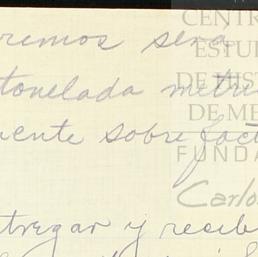 remos sera
tonelada metri
mente sobre fact
ntregar y recib
CENTR
ESTU
DE HIST
DE ME
FUNDA
Carlos